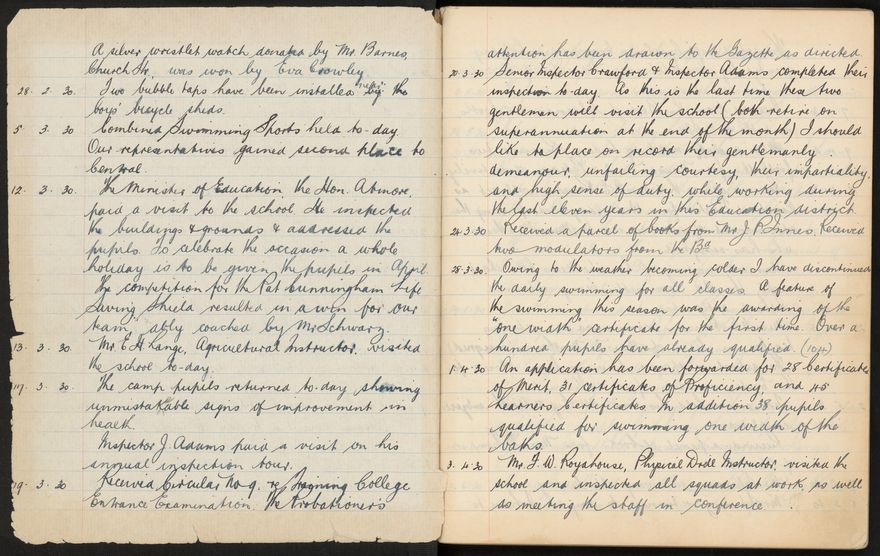 A silver wristlet watch donated by Mr. Barnes,
Church St., was won by Eva Crowley
28. 2. 30. Two bubble taps have been installed near the
boys' bicycle sheds.
5 3. 30 Combined Swimming Sports held to-day
Our representatives gained second place to
Central.
12. 3. 30. The Minister of Education, the Hon. Atmore,
paid a visit to the school. He inspected
the buildings & grounds & addressed the
pupils. To celebrate the occasion a whole
holiday is to be given the pupils in April
The competition for the Pat Cunningham Life
Saving Shield resulted in a win for our
team, ably coached by Mr Schwarz.
13. 3. 30. Mr. E. H. Lange, Agricultural Instructor, visited
the school to-day.
17. 3. 30. The camp pupils returned to-day showing
unmistakable signs of improvement in
health.
Inspector J. Adams paid a visit on his
annual inspection tour.
19. 3. 30 Received Circular No. 9. re Training College
Entrance Examination. The Probationers
attention has been drawn to the Gazette as directed.
20.3.30 Senior Inspector Crawford & Inspector Adams completed their
inspection to-day. As this is the last time these two
gentlemen will visit the school (both retire on
superannuation at the end of the month) I should
like to place on record their gentlemanly
demeanour, unfailing courtesy, their impartiality,
and high sense of duty while working during
the last eleven years in this Education district.
24.3.30 Received a parcel of books from Mr J. P. Innes. Received
two modulators from the Bd
28.3.30. Owing to the weather becoming colder I have discontinued
the daily swimming for all classes. A feature of
the swimming this season was the awarding of the
"one width" certificate for the first time. Over a
hundred pupils have already qualified. (104)
1.4.30 An application has been forwarded for 28 Certificates
of Merit, 31 Certificates of Proficiency and 45
Learners Certificates. In addition 38 pupils
qualified for swimming one width of the
baths.
3.4.30 Mr. F. W. Royshouse, Physical Drill Instructor, visited the
school and inspected all squads at work, as well
as meeting the staff in conference.